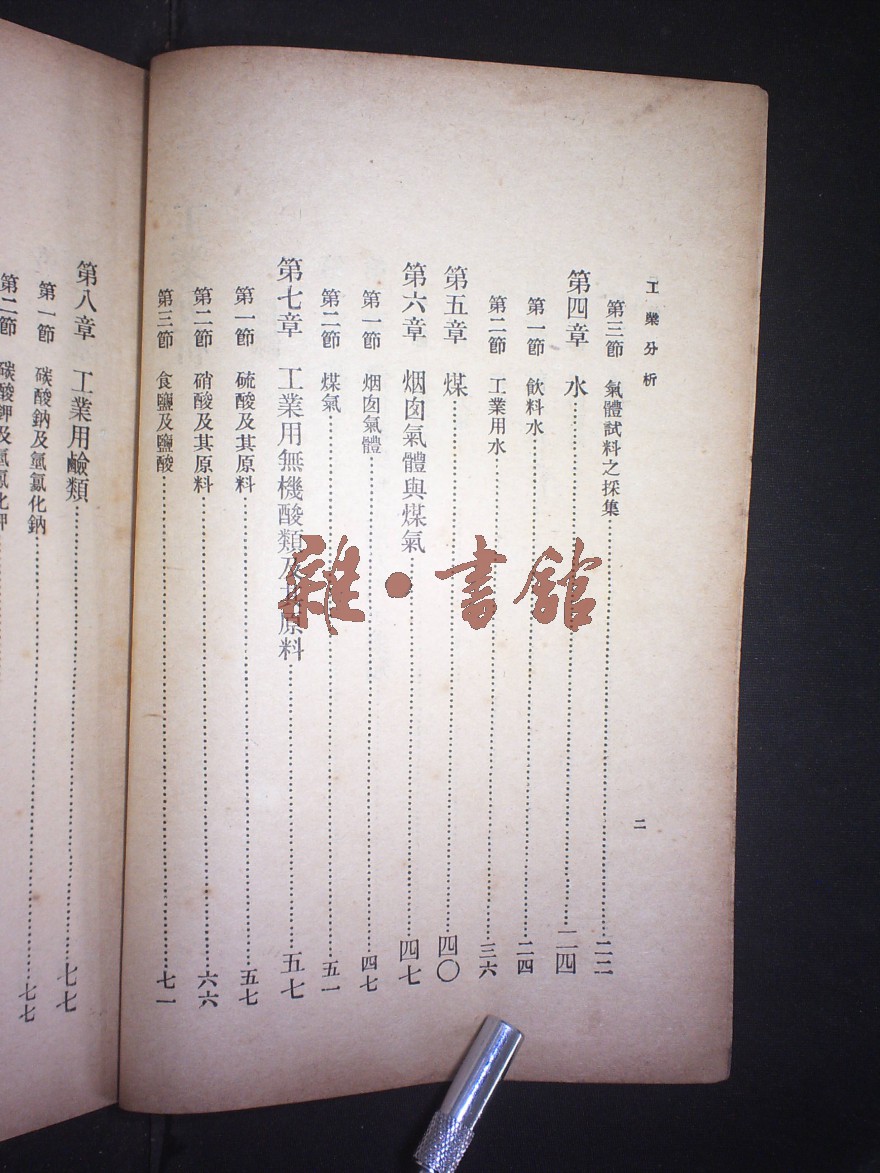 工業分析
二
第三節 氣體試料之採集……二二
第四章 水……二四
第一節 飲料水……二四
第二節 工業用水……三六
第五章 煤……四〇
第六章 烟囱氣體與煤氣……四七
第一節 烟囱氣體……四七
第二節 煤氣……五一
第七章 工業用無機酸類及其原料……五七
第一節 硫酸及其原料……五七
第二節 硝酸及其原料……六六
第三節 食鹽及鹽酸……七一
第八章 工業用鹼類……七七
第一節 碳酸鈉及氫氧化鈉……七七
第二節 碳酸鉀及氫氧化鉀……
雜·書館